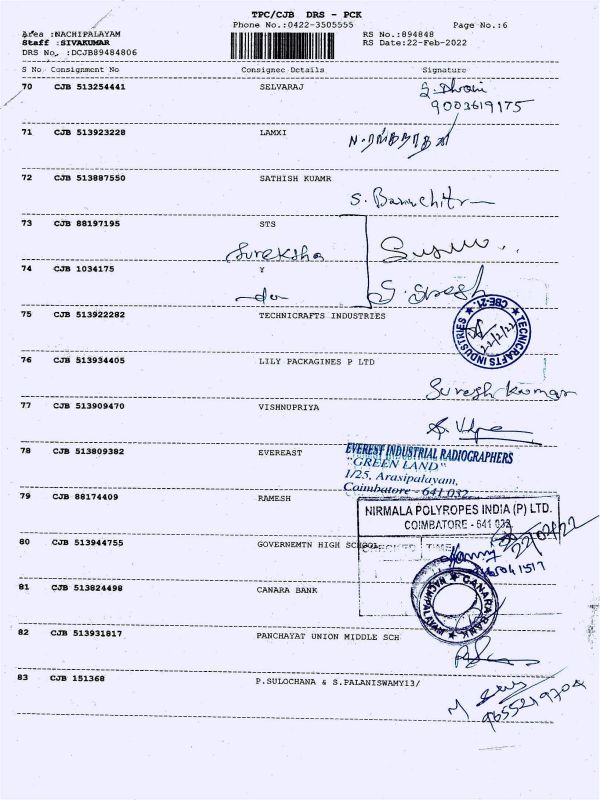 TPC/CJB DRS - PCK
Phone No.:0422-3505555 Page No.:6
Area :NACHIPALAYAM RS No.:894848
Staff :SIVAKUMAR RS Date:22-Feb-2022
DRS No. :DCJB89484806
S No Consignment No Consignee Details Signature
70 CJB 513254441 SELVARAJ
9003619175
71 CJB 513923228 LAMXI
72 CJB 513887550 SATHISH KUAMR
73 CJB 88197195 STS
Sureksha
74 CJB 1034175 Y
S. Suresh
75 CJB 513922282 TECHNICRAFTS INDUSTRIES
TECNICRAFTS INDUSTRIES ★ CBE-21 ★
22/2/22
76 CJB 513934405 LILY PACKAGINES P LTD
Suresh kumar
77 CJB 513909470 VISHNUPRIYA
78 CJB 513809382 EVEREAST
EVEREST INDUSTRIAL RADIOGRAPHERS
"GREEN LAND"
1/25, Arasipalayam,
Coimbatore - 641 032.
79 CJB 88174409 RAMESH
NIRMALA POLYROPES INDIA (P) LTD.
COIMBATORE - 641 032.
22/02/22
80 CJB 513944755 GOVERNEMTN HIGH SCHOOL
CHECKED TIME
81 CJB 513824498 CANARA BANK
★ CANARA BANK ★
82 CJB 513931817 PANCHAYAT UNION MIDDLE SCH
83 CJB 151368 P.SULOCHANA & S.PALANISWAMY13/
9655219704